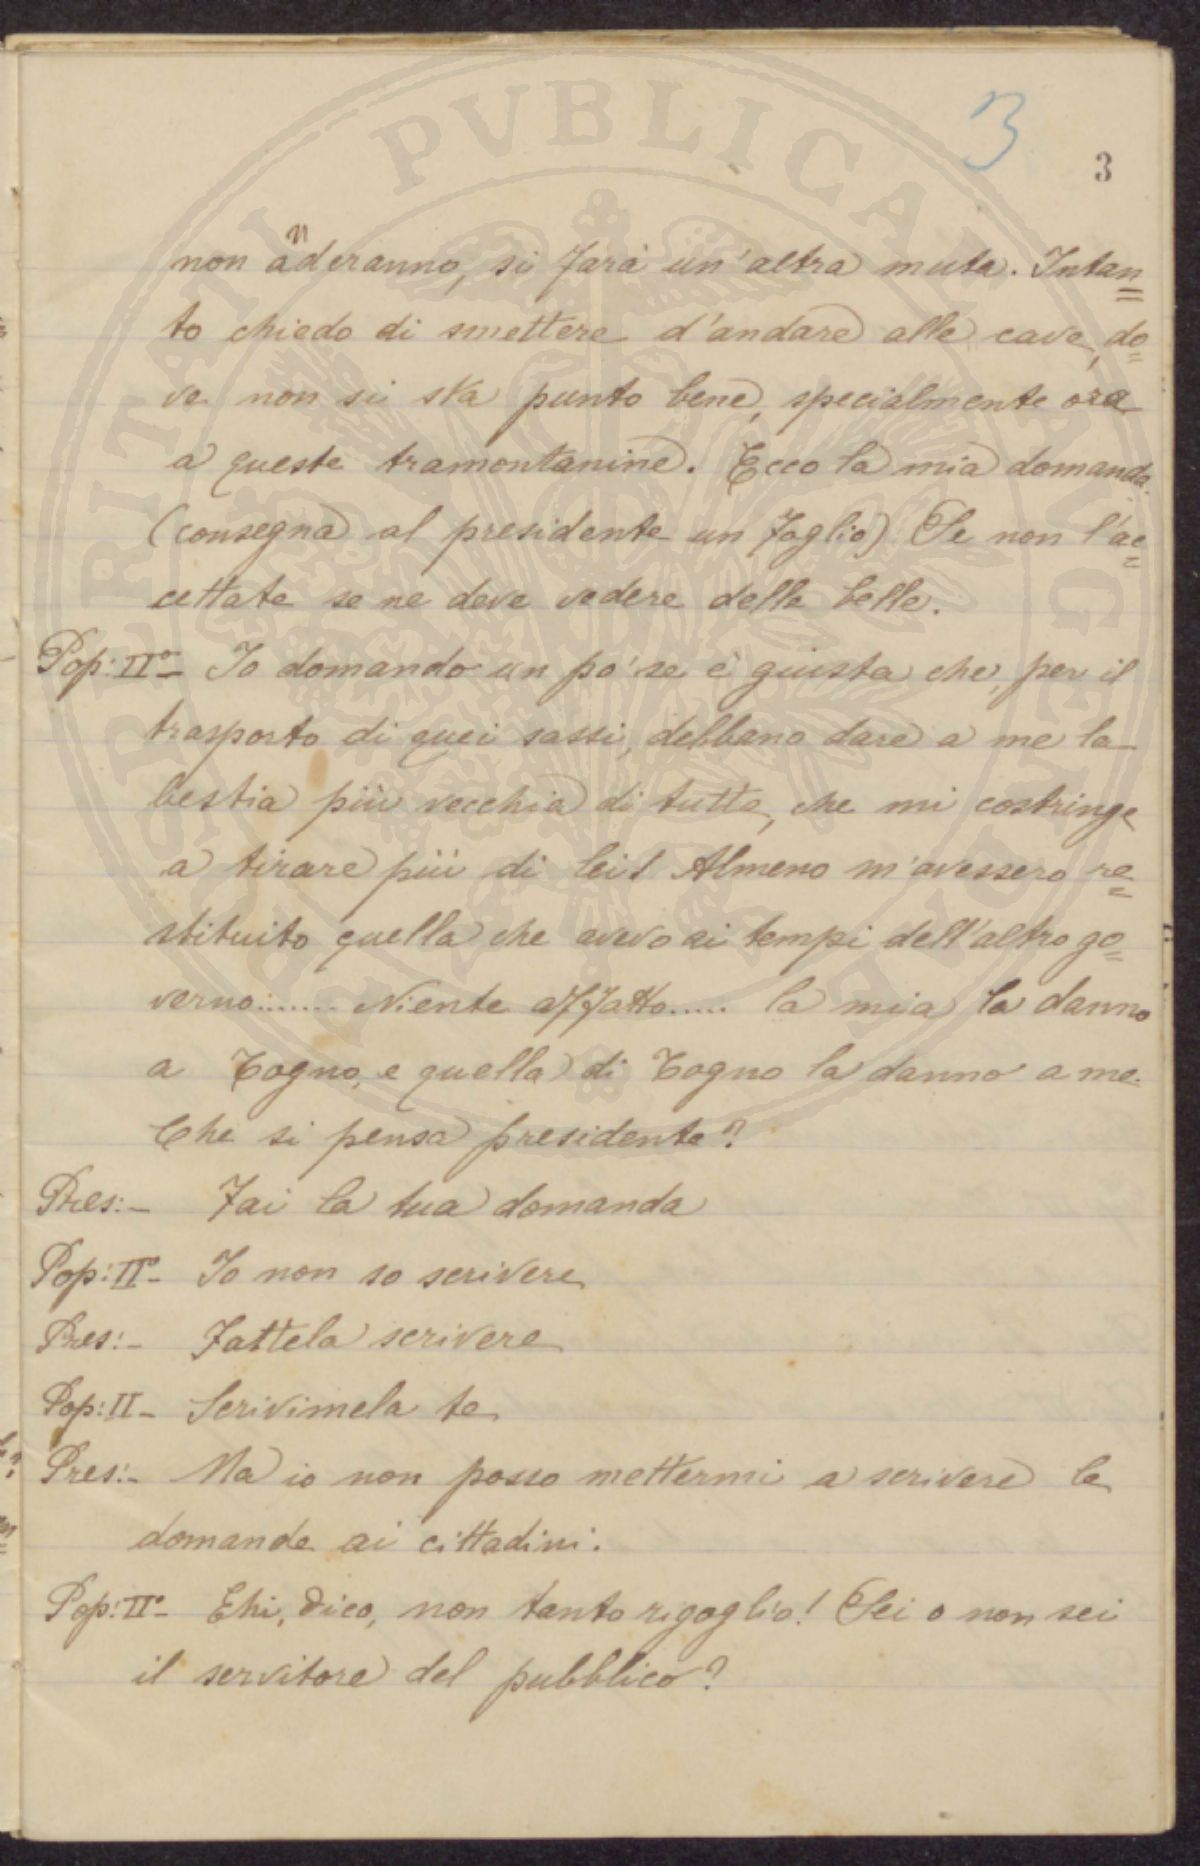 PROSPERITATI PVBLICAE AVGENDAE
3
3
non anderanno, si farà un'altra muta. Intan=
to chiedo di smettere d'andare alle cave, do=
ve non si sta punto bene, specialmente ora
a queste tramontanine. Ecco la mia domanda.
(consegna al presidente un foglio) Se non l'ac=
cettate se ne deve vedere delle belle.
Pop: IIº- Io domando un po' se è giusta che, per il
trasporto di quei sassi, debbano dare a me la
bestia più vecchia di tutte, che mi costringe
a tirare più di lei! Almeno m'avessero re=
stituito quella che avevo ai tempi dell'altro go=
verno....... Niente affatto..... la mia la danno
a Togno, e quella di Togno la danno a me.
Che si pensa presidente?
Pres:- Fai la tua domanda
Pop: IIº- Io non so scrivere
Pres:- Fattela scrivere
Pop: II- Scrivimela te
Pres:- Ma io non posso mettermi a scrivere le
domande ai cittadini.
Pop: IIº- Ehi, dico, non tanto rigoglio! Sei o non sei
il servitore del pubblico?